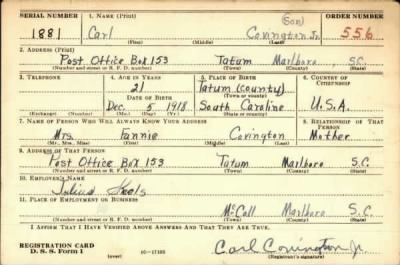 SERIAL NUMBER 1. NAME (Print) ORDER NUMBER
(Son)
1881 Carl Covington Jr 556
(First) (Middle) (Last)
2. ADDRESS (Print)
Post Office Box 153 Tatum Marlboro S.C.
(Number and street or R. F. D. number) (Town) (County) (State)
3. TELEPHONE 4. AGE IN YEARS 5. PLACE OF BIRTH 6. COUNTRY OF CITIZENSHIP
21 Tatum (county)
DATE OF BIRTH (Town or county)
Dec. 5 1918 South Caroline U.S.A.
(Exchange) (Number) (Mo.) (Day) (Yr.) (State or country)
7. NAME OF PERSON WHO WILL ALWAYS KNOW YOUR ADDRESS 8. RELATIONSHIP OF THAT PERSON
Mrs. Fannie Covington Mother
(Mr., Mrs., Miss) (First) (Middle) (Last)
9. ADDRESS OF THAT PERSON
Post Office Box 153 Tatum Marlboro S.C.
(Number and street or R. F. D. number) (Town) (County) (State)
10. EMPLOYER'S NAME
Julius
11. PLACE OF EMPLOYMENT OR BUSINESS
McCall Marlboro S.C.
(Number and street or R. F. D. number) (Town) (County) (State)
I AFFIRM THAT I HAVE VERIFIED ABOVE ANSWERS AND THAT THEY ARE TRUE.
REGISTRATION CARD
D. S. S. Form 1 (over) 16-17105 Carl Covington Jr.